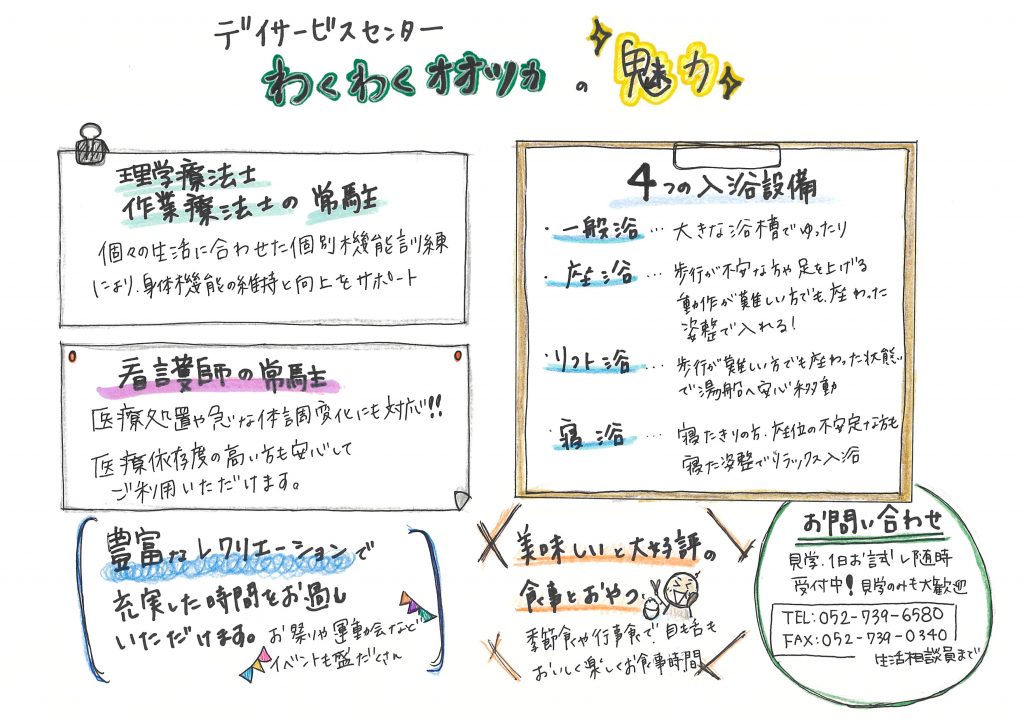 デイサービスセンター
わくわくオオツカの魅力
理学療法士
作業療法士の常駐
個々の生活に合わせた個別機能訓練
により、身体機能の維持と向上をサポート
看護師の常駐
医療処置や急な体調変化にも対応!!
医療依存度の高い方も安心して
ご利用いただけます。
4つの入浴設備
・一般浴…大きな浴槽でゆったり
・座浴…歩行が不安な方や足を上げる
動作が難しい方でも座わった
姿整で入れる!
・リフト浴…歩行が難しい方でも座わった状態
で湯船へ安心移動
・寝浴…寝たきりの方、座位の不安定な方も
寝た姿整でリラックス入浴
豊富なレクリエーションで
充実した時間をお過し
いただけます。お祭りや運動会など
イベントも盛だくさん
美味しいと大好評の
食事とおやつ
季節食や行事食で目も舌も
おいしく楽しくお食事時間
お問い合わせ
見学、1日お試し随時
受付中!見学のみも大歓迎
TEL:052-739-6580
FAX:052-739-0340
生活相談員まで